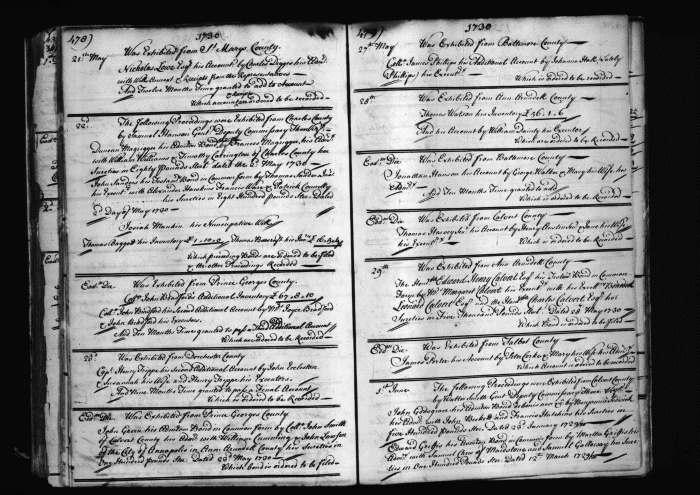 478)
1730
21st May
Was Exhibited from St Marys County.
Nicholas Lowe Esqr his Account by Charles Diggs his Admr
with Will Annext & Receipts from the Representatives
And Twelve Months Time granted to add to Account
Which account are ordered to be recorded
22d
The following Proceedings were Exhibited from Charles County
by Samuel Hanson Gent Deputy Commissary Thereof
Duncan Magregor his Admon Bond Frances Magregor his Admx
with William Williams & Timothy Carrington of Charles County her
Sureties in Eighty Pounds Ster. dated the 2d May 1730
John Sanders his Testamt Bond in Common form by Thomas
his Execut with Alexander Hawkins Francis Ware & Patrick Connelly
his Sureties in Eight Hundred Pounds Ster. Dated
2d Day of May 1730
Josiah Mankin his Nuncupative Will
Thomas Baggott his Inventory £ 1..10..0 Thomas Bancroft his Inv £ 16
Which preceeding Bonds are ordered to be filed
& the other Proceedings Recorded
Eodm Die
Was Exhibited from Prince Georges County
Colo John Bradford Additional Inventory £ 67..8..10
Colo John Bradford his second Additional Account by Mrs Joyce Bradford
& John Bradford his Executors
And Ten Months Time granted to pass a Third Additional Account
Which are ordered to be Recorded
25th
Was Exhibited from Dorchester County
Capt Henry Trippe his second Additional Account by John Eccleston
& Susannah his Wife and Henry Trippe his Executors.
And Nine Months Time granted to pass a Final Account
Which is ordered to be Recorded
Eodm Die
Was Exhibited from Prince Georges County
John Green his Admon Bond in Common form by Collo John Smith
of Calvert County his Admr with William Cumming & John Lawson
of the City of Annapolis in Ann Arundell County his Sureties in
One Hundred Pounds Ster. Dated 22d May 1730
Which Bond is ordered to be filed
479)
1730
27th May
Was Exhibited from Baltemore County
Collo James Phillips his Additional Account by Johanna Hall (Lately
Phillips) his Execut
Which is ordered to be recorded
28th
Was Exhibited from Ann Arundell County
Thomas Watson his Inventory £ 36..1..6
And his Account by William his Executor
Which are ordered to be Recorded
Eodm Die
Was Exhibited from Baltemore County
Jonathan Hanson his Account by George Walton & Mary his Wife his
Admx
And Ten Months Time granted to add
Which is ordered to be recorded
Eodm Die
Was Exhibited from Calvert County
Thomas Harvey Junr his Account by Henry Austin & Jane his Wife
his Execut
Which is ordered to be Recorded
29th
Was Exhibited from Ann Arundell County
The Honble Edward Henry Calvert Esqr his Testamt Bond in Common
Form by Mrs Margaret Calvert his Execut with his Excell Benedict
Leonard Calvert Esqr and the Honble Charles Calvert Esqr her
Sureties in Five Thousand Pounds Ster. Dated 28 May 1730
Which Bond is ordered to be filed
Eodm Die
Was Exhibited from Talbot County
James Porter his Account by Peter & Mary his Wife his Admx
Which Account is ordered to be recorded
1st June
The following Proceedings were Exhibited from Calvert County
by Walter Smith Gent Deputy Commissary thereof Vizt
John Godsgrace his Admon Bond
his Admx with John Beckett and Francis Hutchins his Sureties in
five Hundred Pounds Ster. Dated 23d January 1729/30
Edward Griffis his Admon Bond in Common form by Martha Griffis his
Admx with Samuel Chew of Maidstone and James her Sure
ties in One Hundred Pounds Ster. Dated 12th March 1729/30